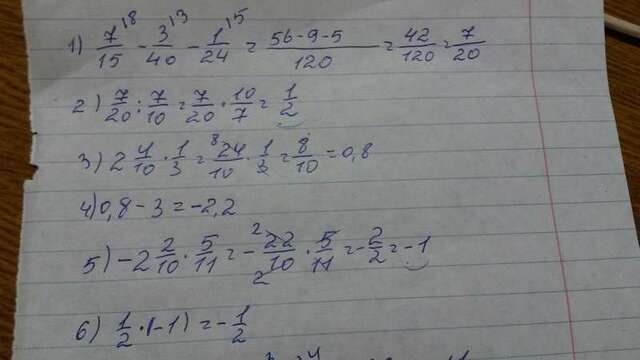 1) 7/15 \8 - 3/40 \3 - 1/24 \5 = (56-9-5)/120 = 42/120 = 7/20
2) 7/20 : 7/10 = 7/20 · 10/7 = 1/2
3) 2 4/10 · 1/3 = 8 24/10 · 1/3 = 8/10 = 0,8
4) 0,8 - 3 = -2,2
5) -2 2/10 · 5/11 = - 2 22/10 2 · 5/11 = - 2/2 = -1
6) 1/2 · (-1) = - 1/2